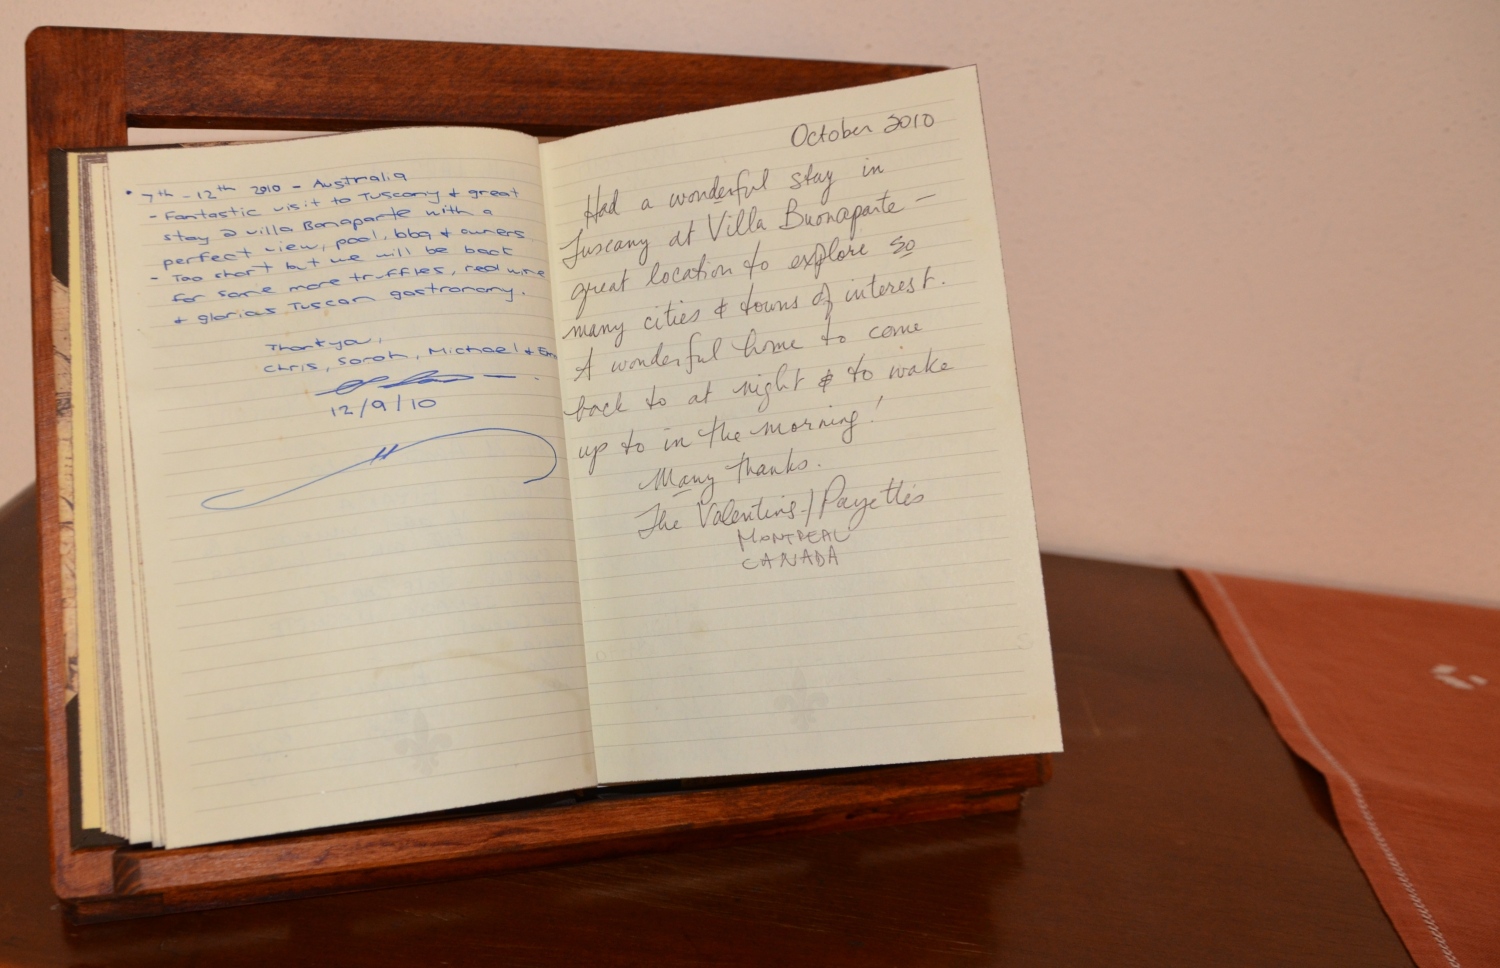 • 7th - 12th 2010 - Australia
- Fantastic visit to Tuscany & great
stay @ villa Bonaparte with a
perfect view, pool, bbq & owners.
- Too short but we will be back
for some more truffles, red wine
& glorias Tuscan gastronomy.
Thankyou,
Chris, Sarah, Michael &
12/9/10
October 2010
Had a wonderful stay in
Tuscany at Villa Buonaparte -
great location to explore so
many cities & towns of interest.
A wonderful home to come
back to at night & to wake
up to in the morning!
Many thanks.
The Valentins / Payettes
MONTREAL
CANADA